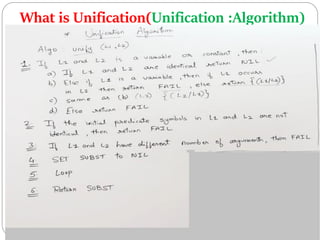 What is Unification(Unification :Algorithm)
* Unification Algorithm
Algo unify (L1, L2)
1. If L1 and L2 is a variable or constant, then:
a) If L1 and L2 are identical return NIL
b) Else if L1 is a variable, then if L1 occurs
in L2 then return FAIL, else return {(L2/L1)}
c) same as (b) (L2) {(L1/L2)}
d) Else return FAIL
2. If the initial predicate symbols in L1 and L2 are not
identical, then return FAIL
3. If L1 and L2 have different number of arguments, then FAIL
4. SET SUBST to NIL
5. Loop
6. Return SUBST